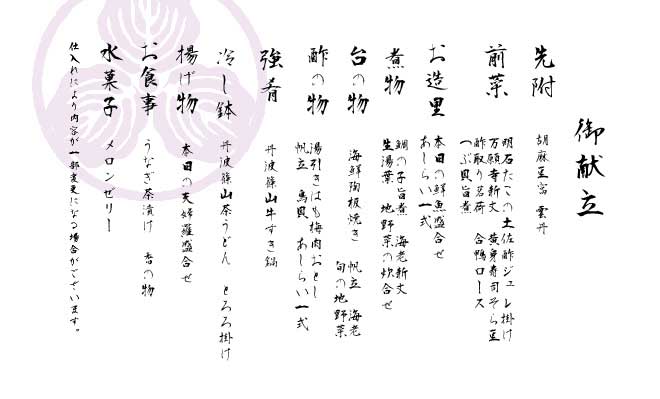 御献立
先附
胡麻豆富 雲丹
前菜
明石たこの土佐酢ジュレ掛け
万願寺新丈 黄身寿司そら豆
酢取り茗荷 合鴨ロース
つぶ貝旨煮
お造里
本日の鮮魚盛合せ
あしらい一式
煮物
鯛の子旨煮 海老新丈
生湯葉 地野菜の炊合せ
台の物
海鮮陶板焼き 帆立 海老
旬の地野菜
酢の物
湯引きはも梅肉おとし
帆立 鳥貝 あしらい一式
強肴
丹波篠山牛すき鍋
冷し鉢
丹波篠山茶うどん とろろ掛け
揚げ物
本日の天婦羅盛合せ
お食事
うなぎ茶漬け 香の物
水菓子
メロンゼリー
仕入れにより内容が一部変更になる場合がございます。